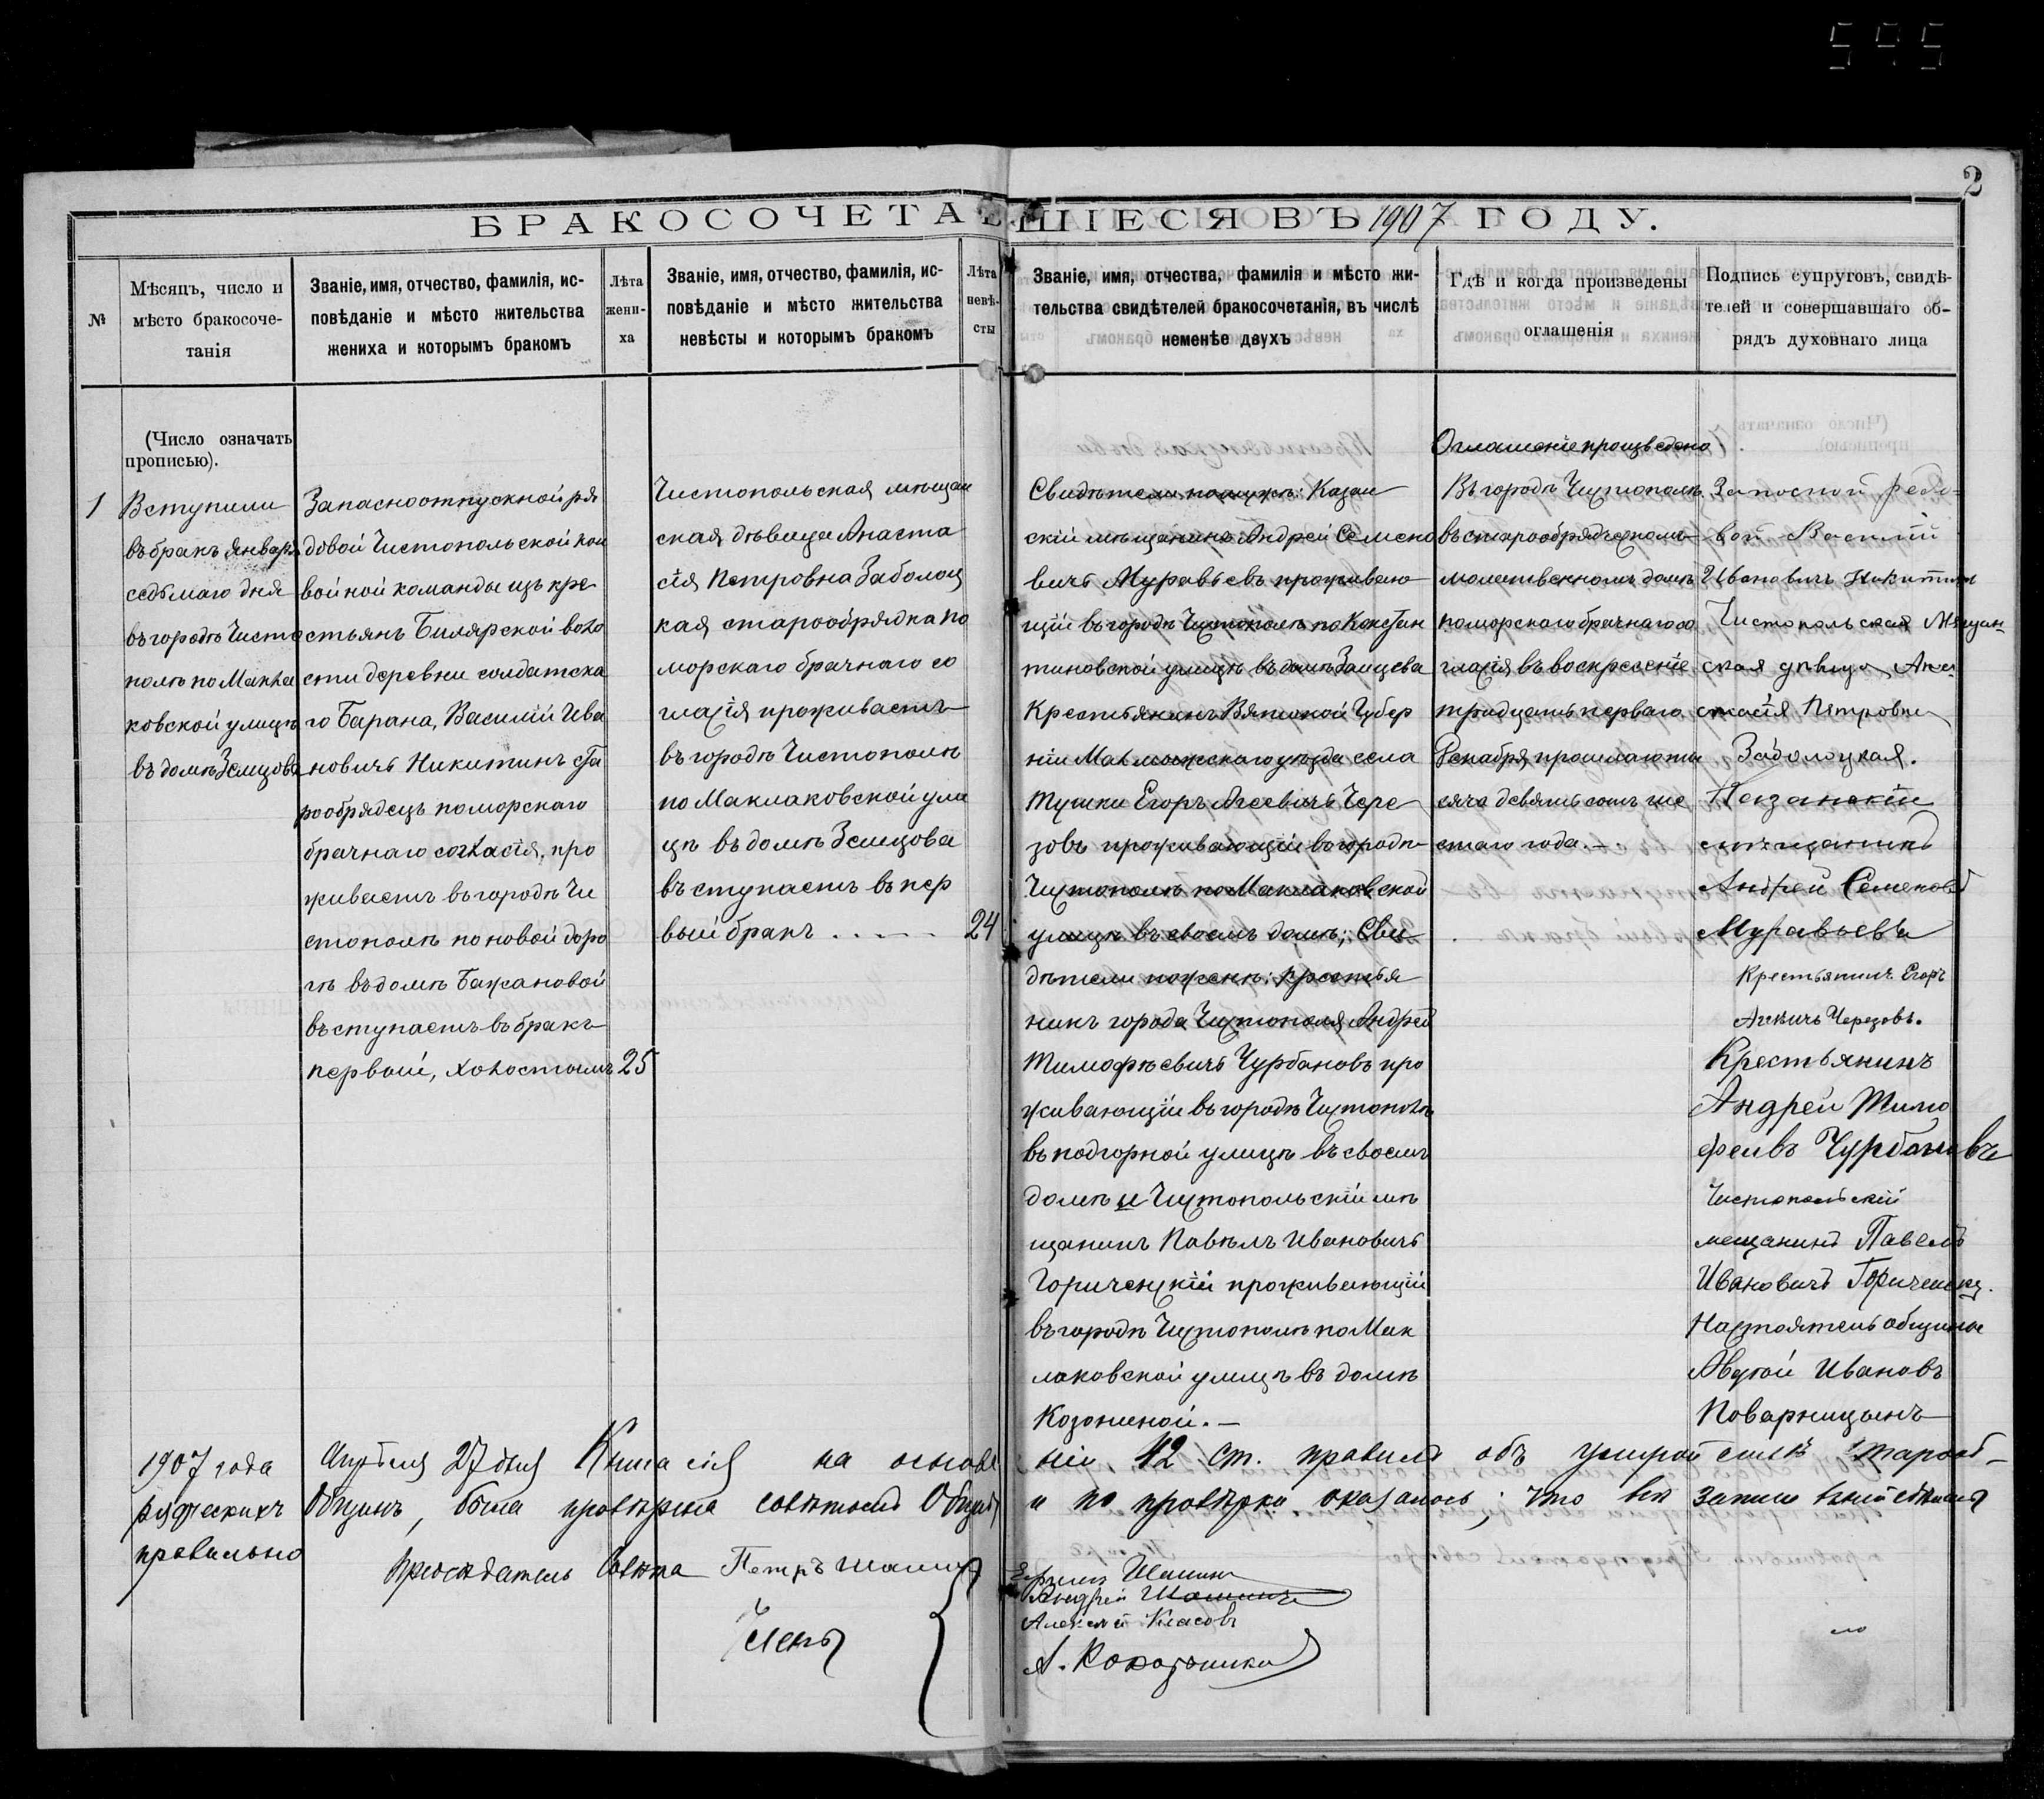 595
2
БРАКОСОЧЕТАВШІЕСЯ ВЪ 1907 ГОДУ.
№
Мѣсяцъ, число и
мѣсто бракосоче-
танія
Званіе, имя, отчество, фамилія, ис-
повѣданіе и мѣсто жительства
жениха и которымъ бракомъ
Лѣта
жени-
ха
Званіе, имя, отчество, фамилія, ис-
повѣданіе и мѣсто жительства
невѣсты и которымъ бракомъ
Лѣта
невѣ-
сты
Званіе, имя, отчества, фамилія и мѣсто жи-
тельства свидѣтелей бракосочетанія, въ числѣ
неменѣе двухъ
Гдѣ и когда произведены
оглашенія
Подпись супруговъ, свидѣ-
телей и совершавшаго об-
рядъ духовнаго лица
(Число означать
прописью).
1
Вступили
въ бракъ января
седьмаго дня
въ городѣ Чисто
полѣ по Макла
ковской улицѣ
въ домѣ Земцова
Запасноотпускной ря
довой Чистопольской кон
войной команды изъ кре
стьянъ Билярской воло
сти деревни солдатска
го Барана, Василій Ива
новичъ Никитинъ ста
рообрядецъ поморскаго
брачнаго согласія, про
живаетъ въ городѣ Чи
стополѣ по новой доро
гѣ въ домѣ Бажановой
въступаетъ въ бракъ
первой, холостымъ
25
Чистопольская мѣщан
ская дѣвица Анаста
сія Петровна Заболоц
кая старообрядка по
морскаго брачнаго со
гласія проживаетъ
въ городѣ Чистополѣ
по Маклаковской ули
цѣ въ домѣ Земцова
въступаетъ въ пер
вый бракъ . . . . .
24
Свидѣтели по мужѣ: Казан
скій мѣщанинъ Андрей Семено
вичъ Муравьевъ прожи­ваю
щій въ городѣ Чистополѣ по Констан
тиновской улицѣ въ домѣ Заицева
Крестьянинъ Вятской Губер
ніи Малможскаго уѣзда села
Тушки Егоръ Агеевичъ Чере
зовъ проживающій въ городѣ
Чистополѣ по Маклаковской
улицѣ въ своемъ домѣ; Сви
дѣтели по женѣ: крестья
нинъ города Чистополя Андрей
Тимофѣевичъ Чурбановъ про
живающій въ городѣ Чистополѣ
въ подгорной улицѣ въ своемъ
домѣ и Чистопольскій мѣ
щанинъ Павѣлъ Ивановичъ
Гориченскій проживающій
въ городѣ Чистополѣ по Мак
лаковской улицѣ въ домѣ
Козониной.—
Оглашеніе произведено
Въ городѣ Чистополѣ
въ старообрядческомъ
молитвенномъ домѣ
поморскаго брачнаго со
гласія въ воскресеніе
тридцать перваго
декабря прошлаго ты
сяча девятьсотъ ше
стаго года.—
Запасной редо-
вой Василій
Ивановичъ Никитин
Чистопольская Мѣщан-
ская дѣвица Ана-
стасія Пятровна
Заболоцкая.
Казанскій
мѣщанинъ
Андрей Семеновъ
Муравьевъ
Крестьянинъ Егоръ
Агевичъ Черезовъ.
Крестьянинъ
Андрей Тимо
феивъ Чурбановъ
Чистопольскій
мещанинъ Павелъ
Ивановичъ Гориченск.
Настоятель общины
Авдѣй Ивановъ
Поварницынъ
1907 года Апрѣля 27 дня Книга сія на основа
ніи 42 ст. правилъ объ устройствѣ старооб-
рядческихъ Общинъ, была провѣрена совѣтомъ Общины
и по провѣркѣ оказалось, что всѣ записи
правильно
Предсѣдатель Совѣта Петръ Шашин
Члены
Ефимъ Шашин
Андрей Шашинъ
Алексѣй Власовъ